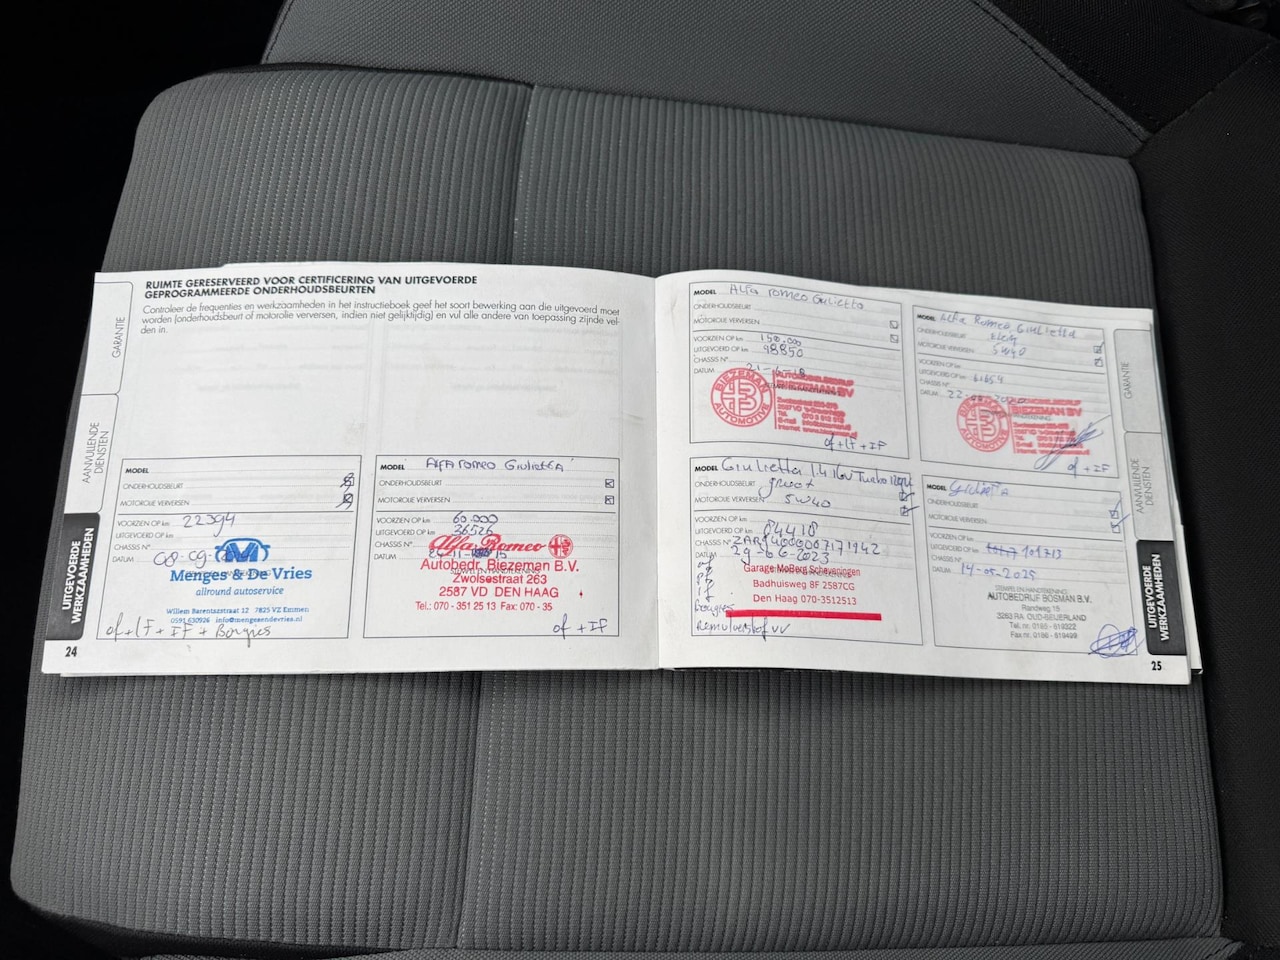 RUIMTE GERESERVEERD VOOR CERTIFICERING VAN UITGEVOERDE
GEPROGRAMMEERDE ONDERHOUDSBEURTEN
Controleer de frequenties en werkzaamheden in het instructieboek geef het soort bewerking aan die uitgevoerd moet
worden (onderhoudsbeurt of motorolie verversen, indien niet gelijktijdig) en vul alle andere van toepassing zijnde vel-
den in.
GARANTIE
AANVULLENDE
DIENSTEN
UITGEVOERDE
WERKZAAMHEDEN
MODEL
ONDERHOUDSBEURT
MOTOROLIE VERVERSEN
VOORZIEN OP km 22394
UITGEVOERD OP km
CHASSIS N°
DATUM 08-09-
Menges & De Vries
allround autoservice
Willem Barentszstraat 12 7825 VZ Emmen
0591 630926 info@mengesendevries.nl
of + LF + IF + Bougies
24
MODEL Alfa Romeo Giulietta
ONDERHOUDSBEURT
MOTOROLIE VERVERSEN
VOORZIEN OP km 60.000
UITGEVOERD OP km 36526
CHASSIS N°
DATUM
Alfa Romeo
Autobedr. Biezeman B.V.
Zwolsestraat 263
2587 VD DEN HAAG
Tel.: 070 - 351 25 13 Fax: 070 - 35
of + IF
MODEL Alfa romeo Giulietta
ONDERHOUDSBEURT
MOTOROLIE VERVERSEN
VOORZIEN OP km
UITGEVOERD OP km 98850
CHASSIS N°
DATUM
BIEZEMAN
AUTOMOTIVE
AUTOMOBIELBEDRIJF
BIEZEMAN BV
of + LF + IF
MODEL Alfa Romeo Giulietta
ONDERHOUDSBEURT
MOTOROLIE VERVERSEN 5W40
VOORZIEN OP km
UITGEVOERD OP km
CHASSIS N°
DATUM
BIEZEMAN
AUTOMOTIVE
BIEZEMAN BV
of + IF
MODEL Giulietta 1.4 16v Turbo
ONDERHOUDSBEURT groot
MOTOROLIE VERVERSEN 5W40
VOORZIEN OP km
UITGEVOERD OP km 84418
CHASSIS N° ZAR94000007171942
DATUM 29-06-2023
of
IF
Bougies
Remvloeistof VV
Garage MoBerg Scheveningen
Badhuisweg 8F 2587CG
Den Haag 070-3512513
MODEL Giulietta
ONDERHOUDSBEURT
MOTOROLIE VERVERSEN
VOORZIEN OP km
UITGEVOERD OP km 101713
CHASSIS N°
DATUM 14-05-2025
STEMPEL EN HANDTEKENING
AUTOBEDRIJF BOSMAN B.V.
Randweg 19
3263 RA OUD-BEIJERLAND
Tel. nr. 0186 - 619322
Fax nr. 0186 - 619499
GARANTIE
AANVULLENDE
DIENSTEN
UITGEVOERDE
WERKZAAMHEDEN
25